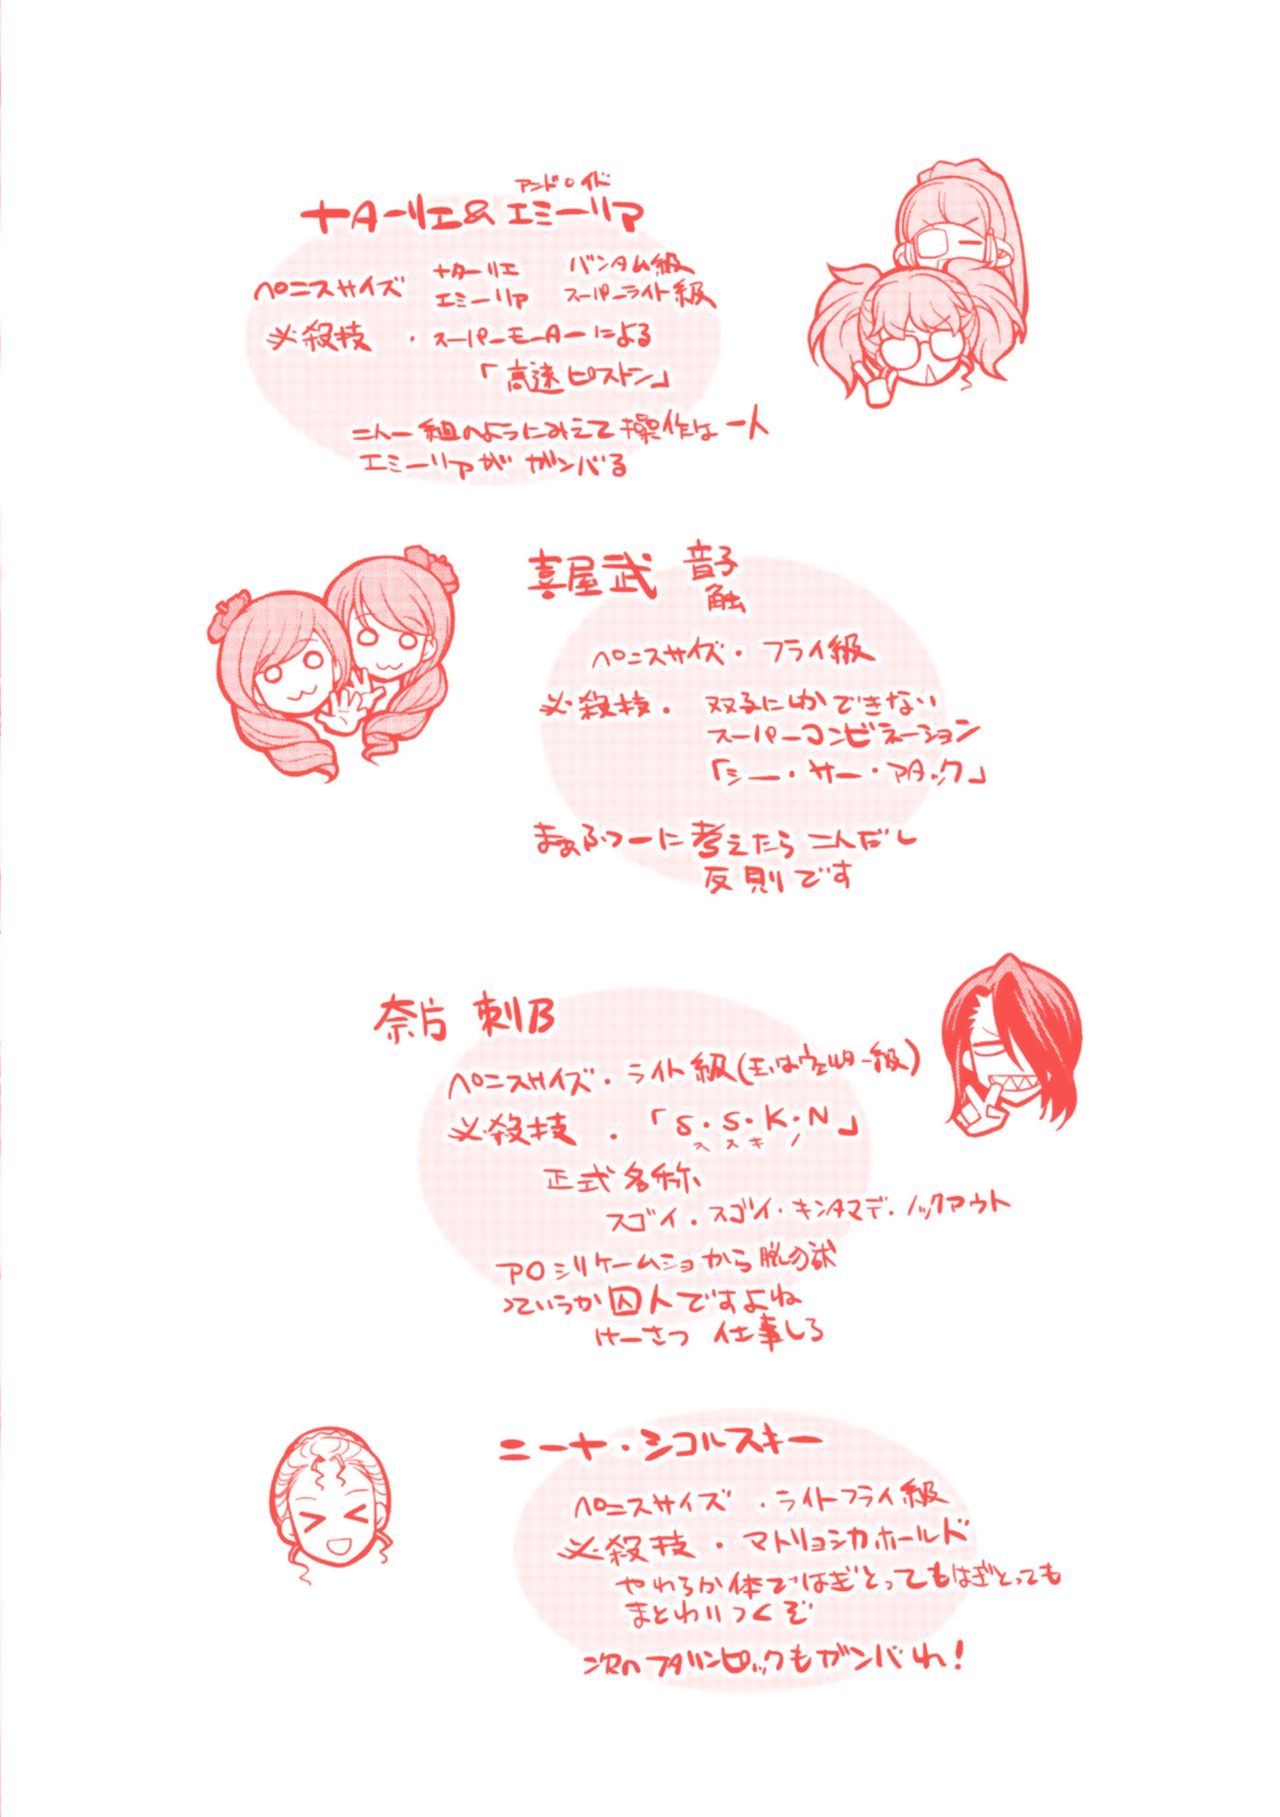 アンドロイド
ナターリエ&エミーリア
ペニスサイズ ナターリエ バンタム級
エミーリア スーパーライト級
必殺技 ・スーパーモーターによる
「高速ピストン」
二人一組のようにみえて操作は一人
エミーリアがガンバる
喜屋武 音子
触
ペニスサイズ・フライ級
必殺技・双子にしかできない
スーパーコンビネーション
「シー・サー・アタック」
まぁふつーに考えたら二人だし
反則です
奈片 刺B
ペニスサイズ・ライト級(玉はウェルター級)
必殺技・「S・S・K・N」
ススキノ
正式名称
スゴイ・スゴイ・キンタマデ・ノックアウト
アOシリケームショから脱の獄
っていうか囚人ですよね
けーさつ 仕事しろ
ニーナ・シコルスキー
ペニスサイズ ・ライトフライ級
必殺技・マトリョシカホールド
やわらか体ではぎとってもはぎとっても
まとわりつくぞ
次のフタリンピックもガンバれ!